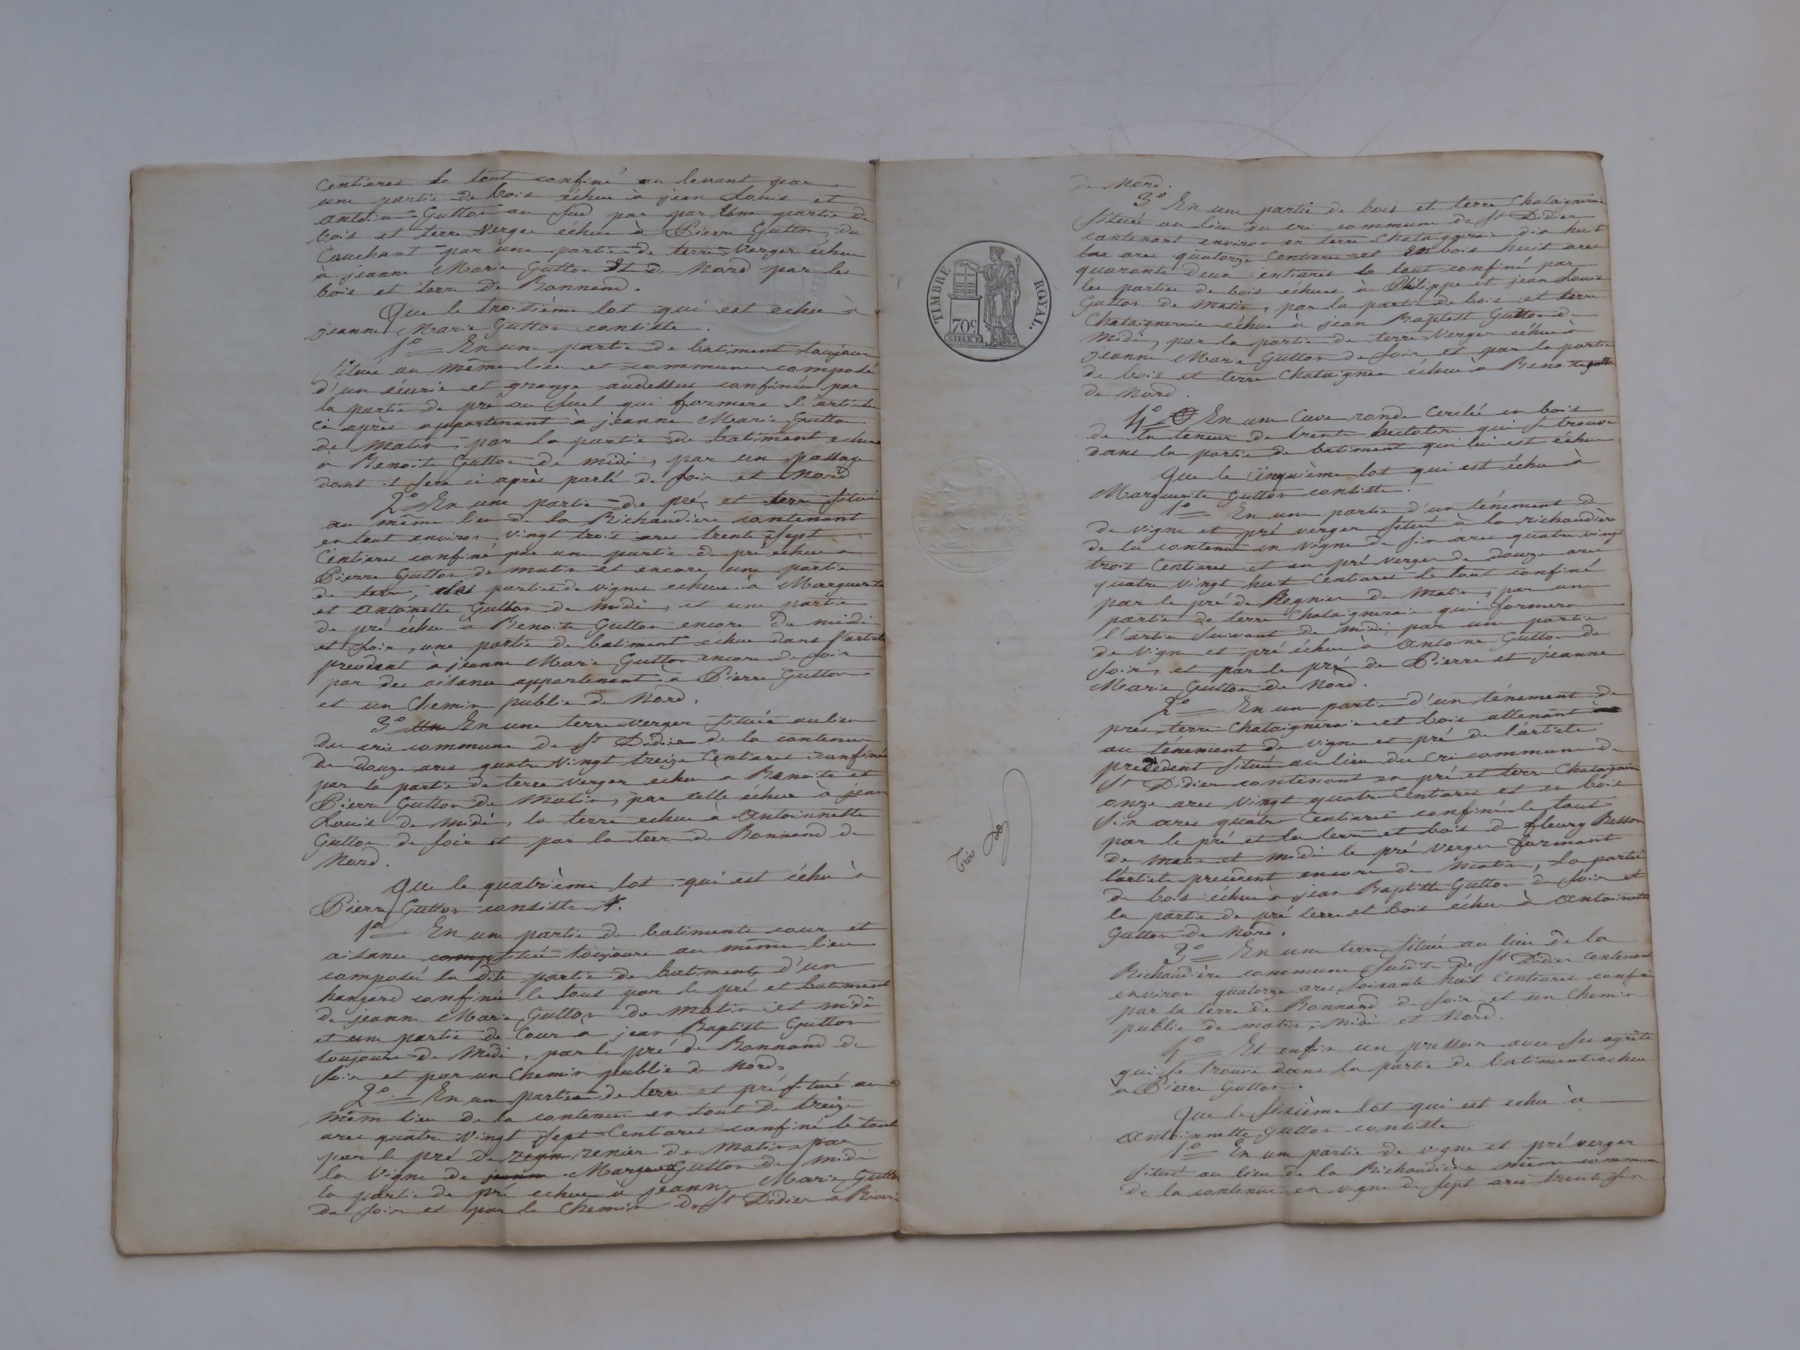 centiares le tout confiné au levant par
une partie de bois échue à jean Louis et
antoine Gutton au Sud par par Une partie de
bois et terre verger echue à Pierre Gutton, du
Couchant par une partie de terre verger échue
à jeanne Marie Gutton Et de Nord par les
bois et terre de Bonnand.
Que le troisième lot qui est echue à
jeanne Marie Gutton consiste.
1o En une partie de batiment toujours
Située au même lieu et commune composée
d'un écurie et grange audessus confinée par
la partie de pré au Suel qui formera l'article
ci après appartenant à jeanne Marie Gutton
de Matin, par la partie de batiment echue
a Benoite Gutton de midi, par un passage
dont il sera ci après parlé de soir et Nord
2o En une partie de pré et terre située
au même lieu de la Richaudière contenant
en tout environ vingt trois ares trente Sept
Centiares confiné par une partie de pré échue a
Pierre Gutton de matin et encore une partie
de terre, des parties de vigne echues à Marguerite
et Antoinette Gutton de Midi, et une partie
de pré échue à Benoite Gutton encore de midi
et Soir, une partie de batiment échue dans l'article
précédent a jeanne Marie Gutton encore de Soir
par des aisance appartenant à Pierre Gutton
et un Chemin public de Nord.
3o En une terre verger située au lieu
du cri commune de St Didier de la contenue
de douze ares quatre Vingt treize Centiares confinée
par la partie de terre verger echue a Benoite et
Pierre Gutton de Matin, par celle échue à jean
Louis de midi, la terre echue a Antoinette
Gutton de soir et par la terre de Bonnand de
Nord.
Que le quatrième lot qui est échu à
Pierre Gutton consiste.
1o En une partie de batiments cour et
aisance située toujours au même lieu
composée la dite partie de batiment, d'un
hangard confinée le tout par le pré et batiment
de jeanne Marie Gutton de Matin et midi
et une partie de Cour à jean Baptiste Gutton
toujours de Midi, par le pré de Bonnand de
Soir et par un Chemin public de Nord.
2o En une partie de terre et pré située au
même lieu de la contenue en tout de treize
ares quatre Vingt Sept Centiares confiné le tout
par le pré de renier de Matin par
la Vigne de Margte Gutton de Midi
la partie de pré echue à jeanne Marie Gutton
de soir et par le Chemin de St Didier a
de Nord.
3o En une partie de bois et terre Chataigneraie
située au lieu du cri commune de St Didier
contenant environ en terre Chataigneraie dix huit
ares quatorze Centiares et En bois huit ares
quarante deux Centiares le tout confiné par
les parties de bois échues à Philippe et jean Louis
Gutton de Matin, par la partie de bois et terre
Chataigneraie échue à jean Baptiste Gutton de
Midi, par la partie de terre Verger echue à
jeanne Marie Gutton de Soir, et par la partie
de bois et terre Chataignee echue a Benoite gutton
de Nord.
4o En une Cuve ronde Cerclée en bois
de la teneur de trente hectolitres qui se trouve
dans la partie de batiment qui lui est échue
Que le Cinquième lot qui est échu à
Marguerite Gutton consiste.
1o En une partie d'un ténement de
de vigne et pré verger situé à la richaudière
de la contenue en Vigne de six ares quatre vingt
trois Centiares et en pré verger de douze ares
quatre vingt huit Centiares le tout confiné
par le pré de Regnier de Matin, par une
partie de terre Chataigneraie qui formera
l'article Suivant de midi, par une partie
de vigne et pré échue à Antoine Gutton de
soir, et par le pré de Pierre et jeanne
Marie Gutton de Nord.
2o En une partie d'un ténement de
pré, terre Chataigneraie et bois attenant
au tenement de vigne et pré de l'article
précèdent situé au lieu du Cri commune de
St Didier contenant en pré et terre Chataignée
onze ares Vingt quatre Centiares et en bois
Six ares quatre Centiares confiné le tout
par le pré et la terre et bois de fleury Besson
de matin et midi le pré verger formant
l'article précédent encore de Matin, la partie
de bois échue à jean Baptiste Gutton de soir et
la partie de pré terre et bois échue à Antoinette
Gutton de Nord.
3o En une terre située au lieu de la
Richaudière commune susdite de St Didier contenant
environ quatorze ares soixante huit Centiares confinée
par la terre de Bonnand de soir et un Chemin
public de matin, Midi et Nord.
4o Et enfin un pressoir avec ses agrêts
qui se trouve dans la partie de batiment echue
a Pierre Gutton.
Que le Sixième lot qui est echu à
Antoinette Gutton consiste
1o En une partie de vigne et pré verger
situé au lieu de la Richaudière même commune
de la contenue en vigne de sept ares trente six
TIMBRE ROYAL.
70c